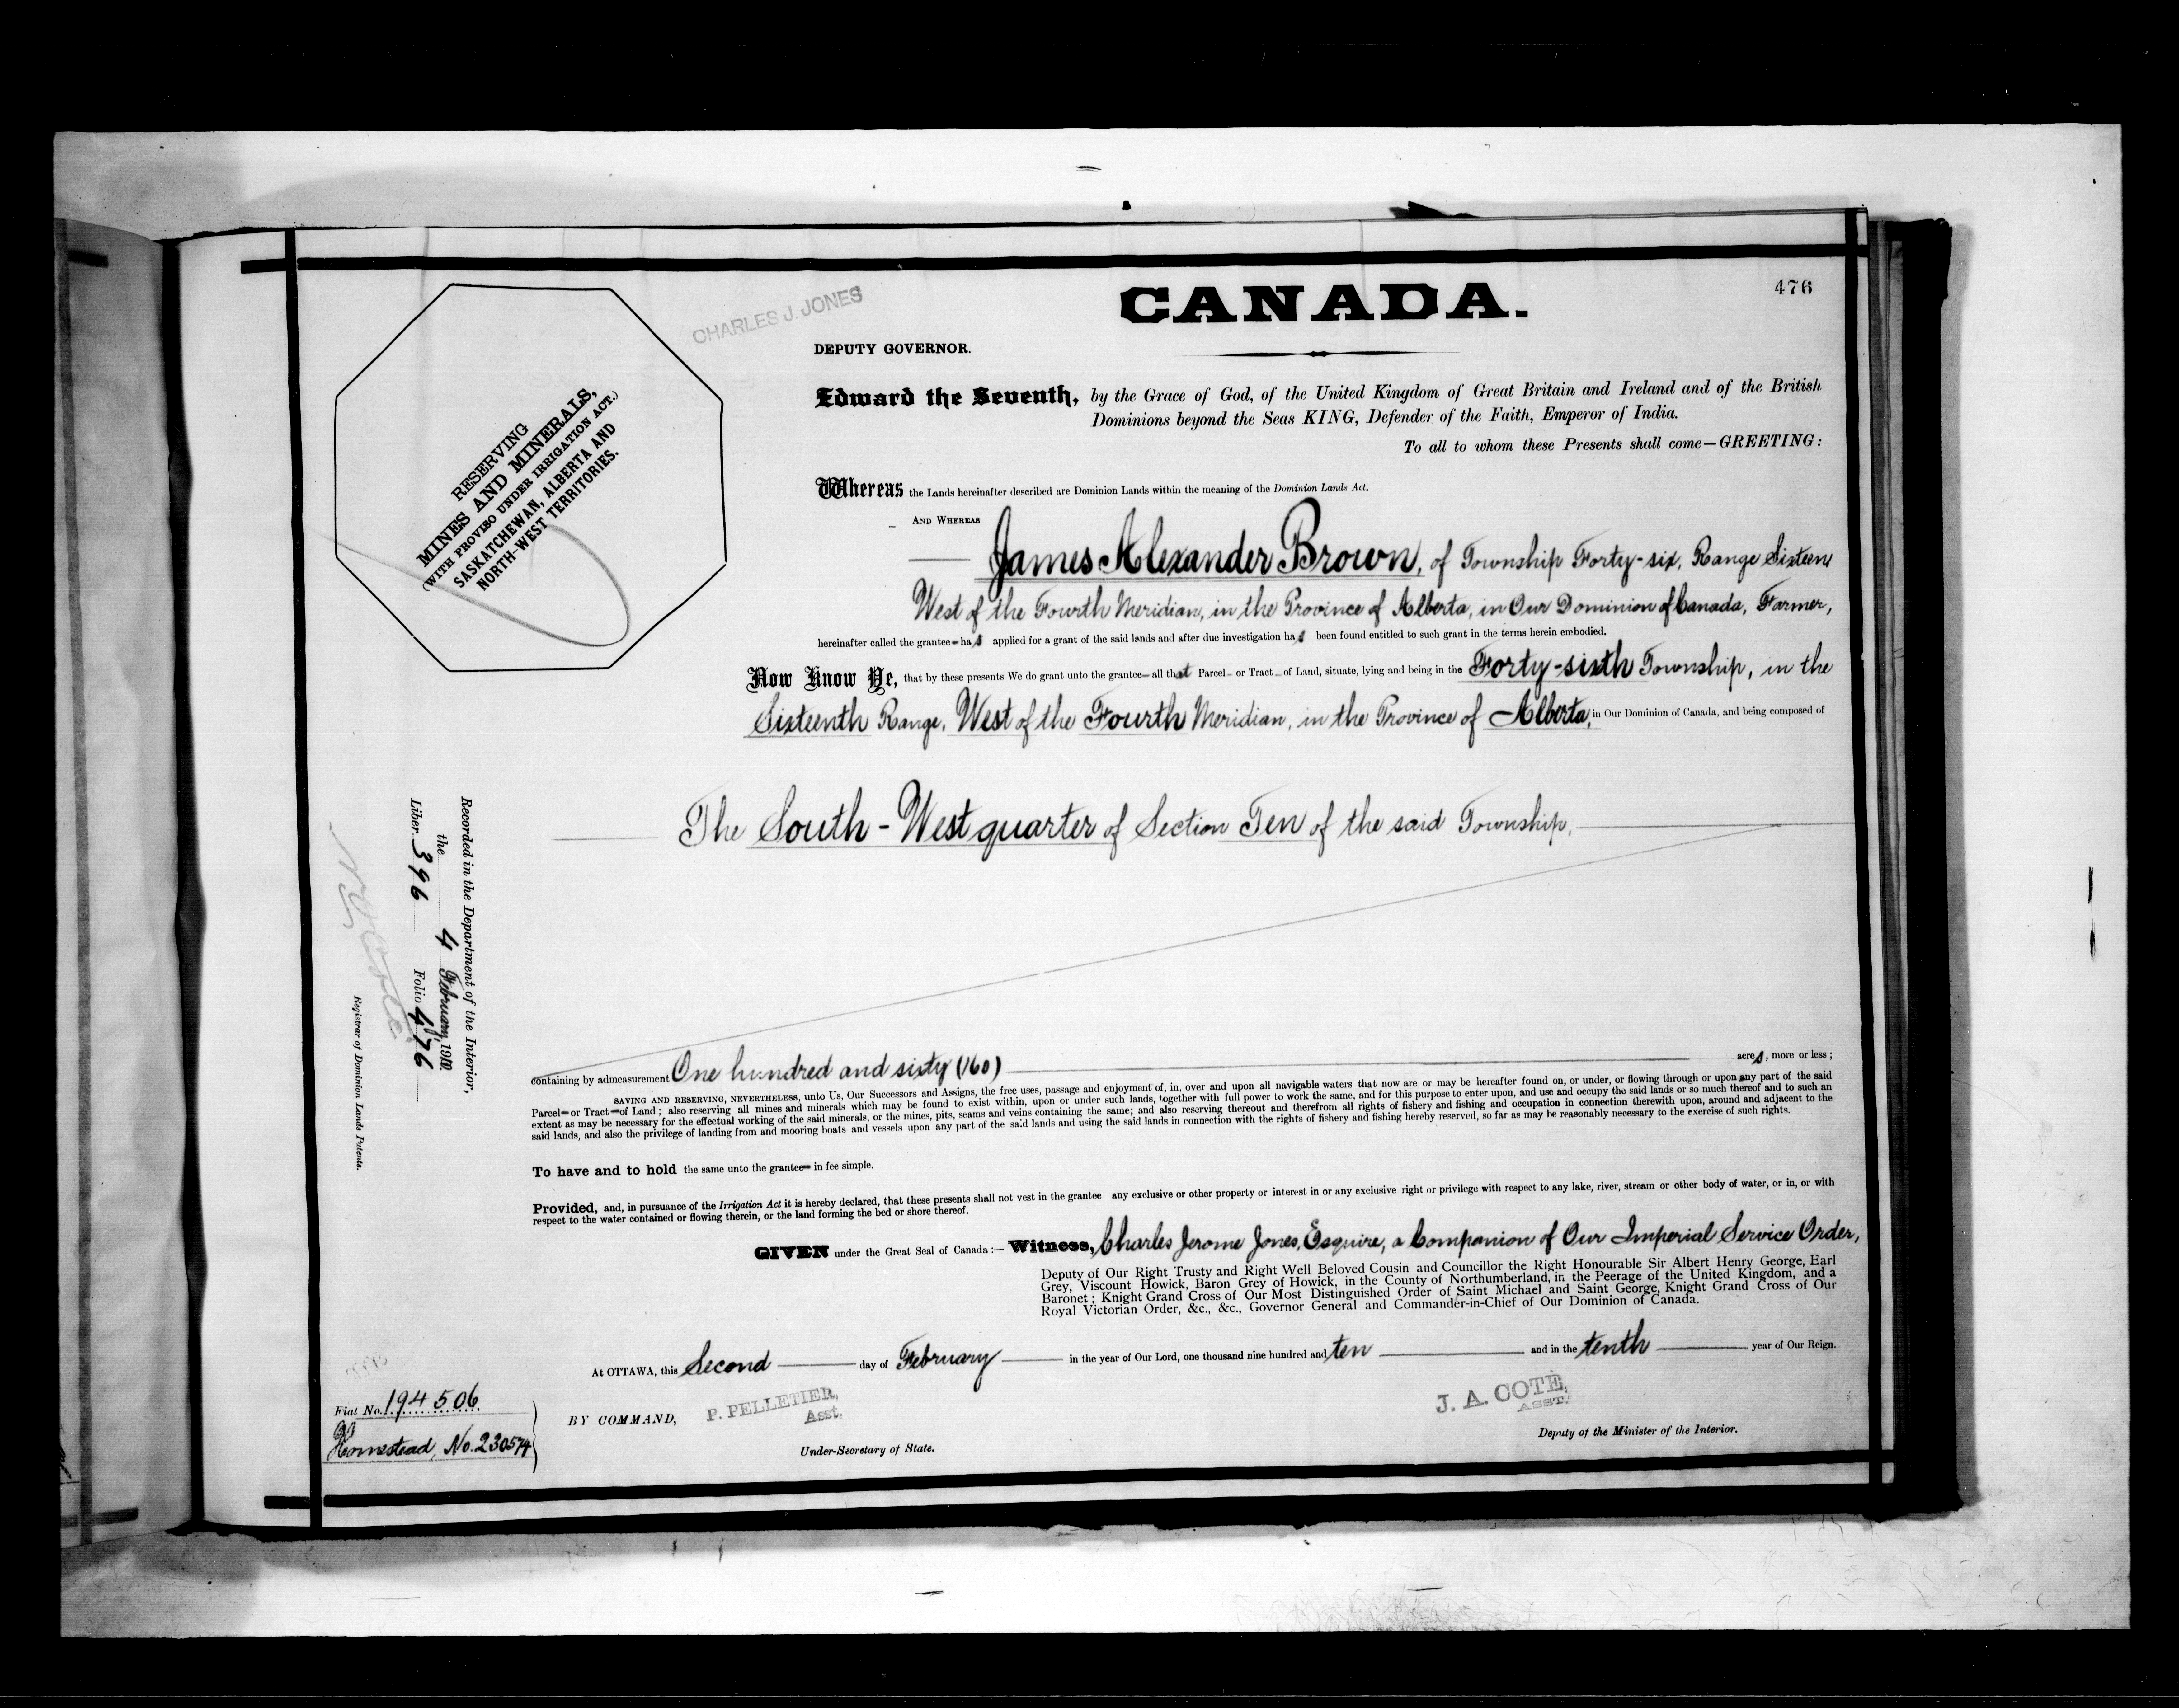 476
CANADA.
CHARLES J. JONES
DEPUTY GOVERNOR.
RESERVING
MINES AND MINERALS,
(WITH PROVISO UNDER IRRIGATION ACT.)
SASKATCHEWAN, ALBERTA AND
NORTH-WEST TERRITORIES.
Edward the Seventh, by the Grace of God, of the United Kingdom of Great Britain and Ireland and of the British
Dominions beyond the Seas KING, Defender of the Faith, Emperor of India.
To all to whom these Presents shall come—GREETING:
Whereas the Lands hereinafter described are Dominion Lands within the meaning of the Dominion Lands Act.
AND WHEREAS
James Alexander Brown, of Township Forty-six, Range Sixteen
West of the Fourth Meridian, in the Province of Alberta, in Our Dominion of Canada, Farmer,
hereinafter called the grantee has applied for a grant of the said lands and after due investigation has been found entitled to such grant in the terms herein embodied.
Now Know Ye, that by these presents We do grant unto the grantee all that Parcel or Tract of Land, situate, lying and being in the Forty-sixth Township, in the
Sixteenth Range, West of the Fourth Meridian, in the Province of Alberta, in Our Dominion of Canada, and being composed of
The South-West quarter of Section Ten of the said Township,
Recorded in the Department of the Interior,
the 4 February, 1910
Liber 396 Folio 476
Registrar of Dominion Lands Patents.
containing by admeasurement One hundred and sixty (160) acres, more or less;
SAVING AND RESERVING, NEVERTHELESS, unto Us, Our Successors and Assigns, the free uses, passage and enjoyment of, in, over and upon all navigable waters that now are or may be hereafter found on, or under, or flowing through or upon any part of the said
Parcel or Tract of Land; also reserving all mines and minerals which may be found to exist within, upon or under such lands, together with full power to work the same, and for this purpose to enter upon, and use and occupy the said lands or so much thereof and to such an
extent as may be necessary for the effectual working of the said minerals, or the mines, pits, seams and veins containing the same; and also reserving thereout and therefrom all rights of fishery and fishing and occupation in connection therewith upon, around and adjacent to the
said lands, and also the privilege of landing from and mooring boats and vessels upon any part of the said lands and using the said lands in connection with the rights of fishery and fishing hereby reserved, so far as may be reasonably necessary to the exercise of such rights.
To have and to hold the same unto the grantee in fee simple.
Provided, and, in pursuance of the Irrigation Act it is hereby declared, that these presents shall not vest in the grantee any exclusive or other property or interest in or any exclusive right or privilege with respect to any lake, river, stream or other body of water, or in, or with
respect to the water contained or flowing therein, or the land forming the bed or shore thereof.
GIVEN under the Great Seal of Canada:— Witness, Charles Jerome Jones, Esquire, a Companion of Our Imperial Service Order,
Deputy of Our Right Trusty and Right Well Beloved Cousin and Councillor the Right Honourable Sir Albert Henry George, Earl
Grey, Viscount Howick, Baron Grey of Howick, in the County of Northumberland, in the Peerage of the United Kingdom, and a
Baronet; Knight Grand Cross of Our Most Distinguished Order of Saint Michael and Saint George, Knight Grand Cross of Our
Royal Victorian Order, &c., &c., Governor General and Commander-in-Chief of Our Dominion of Canada.
At OTTAWA, this Second day of February in the year of Our Lord, one thousand nine hundred and ten and in the tenth year of Our Reign.
Fiat No. 194506
Homestead, No. 230574
BY COMMAND,
P. PELLETIER,
Asst.
Under-Secretary of State.
J. A. COTE,
ASST.
Deputy of the Minister of the Interior.